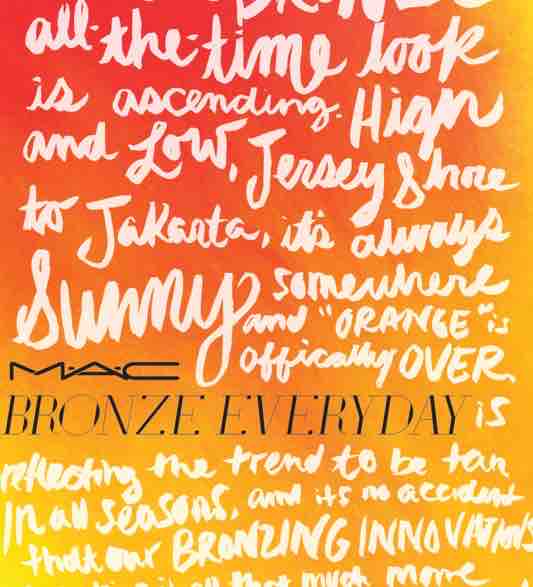 BRONZE
all-the-time look
is ascending. High
and Low, Jersey Shore
to Jakarta, it's always
Sunny somewhere
and "ORANGE" is
offically OVER.
M·A·C
BRONZE EVERYDAY is
reflecting the trend to be tan
in all seasons, and it's no accident
that our BRONZING INNOVATIONS
is all that much more